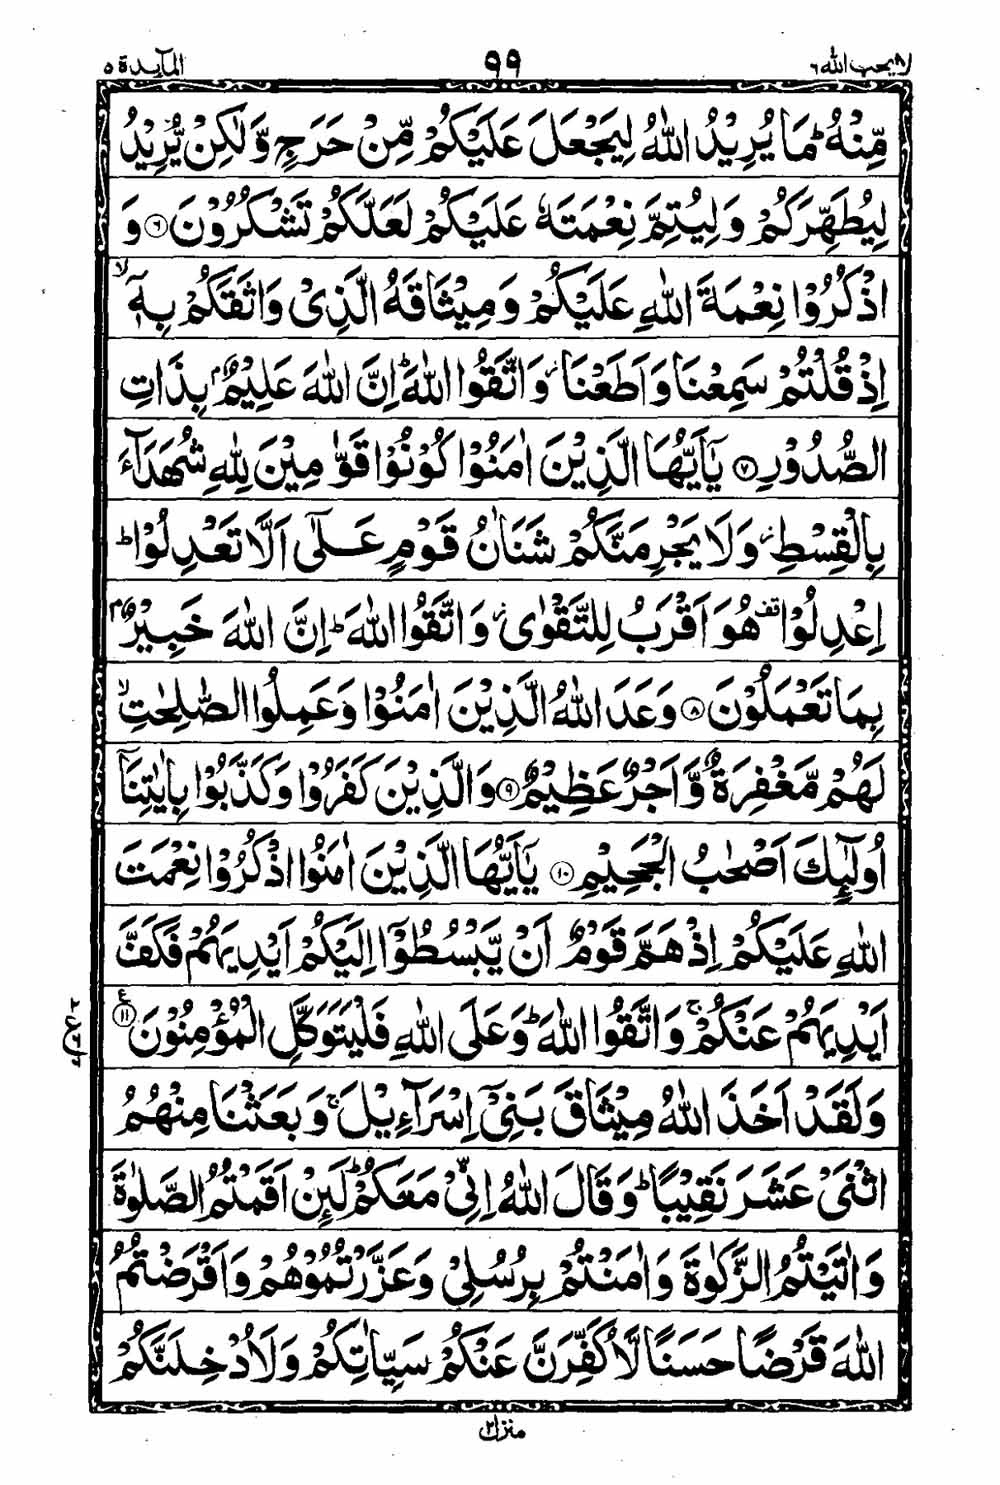 لا یحب اللہ ٦ ٩٩ المآىِٕدة ٥
مِّنْهُ ؕ مَا یُرِیْدُ اللّٰهُ لِیَجْعَلَ عَلَیْكُمْ مِّنْ حَرَجٍ وَّلٰكِنْ یُّرِیْدُ
لِیُطَهِّرَكُمْ وَلِیُتِمَّ نِعْمَتَهٗ عَلَیْكُمْ لَعَلَّكُمْ تَشْكُرُوْنَ ﴿٦﴾ وَ
اذْكُرُوْا نِعْمَةَ اللّٰهِ عَلَیْكُمْ وَمِیْثَاقَهُ الَّذِیْ وَاثَقَكُمْ بِهٖۤ ۙ
اِذْ قُلْتُمْ سَمِعْنَا وَاَطَعْنَا ؗ وَاتَّقُوا اللّٰهَ ؕ اِنَّ اللّٰهَ عَلِیْمٌۢ بِذَاتِ
الصُّدُوْرِ ﴿٧﴾ یٰۤاَیُّهَا الَّذِیْنَ اٰمَنُوْا كُوْنُوْا قَوّٰمِیْنَ لِلّٰهِ شُهَدَآءَ
بِالْقِسْطِ ؗ وَلَا یَجْرِمَنَّكُمْ شَنَاٰنُ قَوْمٍ عَلٰۤی اَلَّا تَعْدِلُوْا ؕ
اِعْدِلُوْا ۫ هُوَ اَقْرَبُ لِلتَّقْوٰی ؗ وَاتَّقُوا اللّٰهَ ؕ اِنَّ اللّٰهَ خَبِیْرٌۢ
بِمَا تَعْمَلُوْنَ ﴿٨﴾ وَعَدَ اللّٰهُ الَّذِیْنَ اٰمَنُوْا وَعَمِلُوا الصّٰلِحٰتِ ۙ
لَهُمْ مَّغْفِرَةٌ وَّاَجْرٌ عَظِیْمٌ ﴿٩﴾ وَالَّذِیْنَ كَفَرُوْا وَكَذَّبُوْا بِاٰیٰتِنَاۤ
اُولٰٓىِٕكَ اَصْحٰبُ الْجَحِیْمِ ﴿١٠﴾ یٰۤاَیُّهَا الَّذِیْنَ اٰمَنُوا اذْكُرُوْا نِعْمَتَ
اللّٰهِ عَلَیْكُمْ اِذْ هَمَّ قَوْمٌ اَنْ یَّبْسُطُوْۤا اِلَیْكُمْ اَیْدِیَهُمْ فَكَفَّ
اَیْدِیَهُمْ عَنْكُمْ ۚ وَاتَّقُوا اللّٰهَ ؕ وَعَلَی اللّٰهِ فَلْیَتَوَكَّلِ الْمُؤْمِنُوْنَ ﴿١١﴾ ع
وَلَقَدْ اَخَذَ اللّٰهُ مِیْثَاقَ بَنِیْۤ اِسْرَآءِیْلَ ۚ وَبَعَثْنَا مِنْهُمُ
اثْنَیْ عَشَرَ نَقِیْبًا ؕ وَقَالَ اللّٰهُ اِنِّیْ مَعَكُمْ ؕ لَىِٕنْ اَقَمْتُمُ الصَّلٰوةَ
وَاٰتَیْتُمُ الزَّكٰوةَ وَاٰمَنْتُمْ بِرُسُلِیْ وَعَزَّرْتُمُوْهُمْ وَاَقْرَضْتُمُ
اللّٰهَ قَرْضًا حَسَنًا لَّاُكَفِّرَنَّ عَنْكُمْ سَیِّاٰتِكُمْ وَلَاُدْخِلَنَّكُمْ
منزل ٢